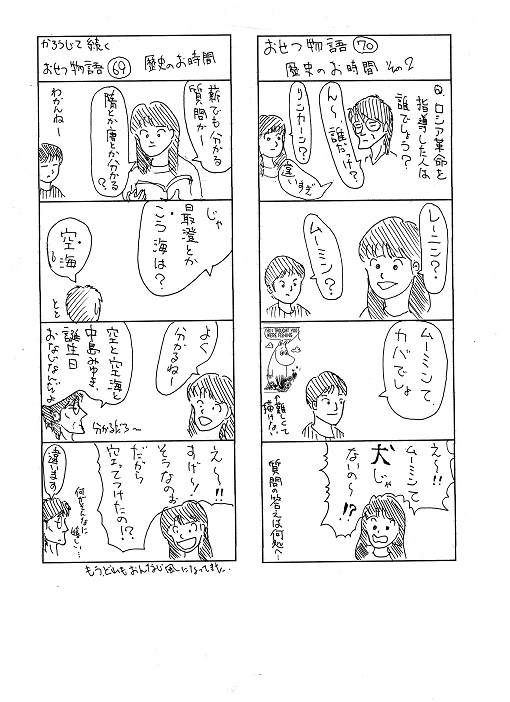 かろうじて続く
おせつ物語 69
歴史のお時間
薪でも分かる
質問かー
隋とか唐とか分かる
？
わかんねー
じゃ
最澄とか
こう海は？
空・海
よく
分かるねー
空と空海と
中島みゆき、
誕生日
おなじなんだよ
分かるだろ〜
え〜!!
すげー！
そうなのぉ
だから
空ってつけたの!?
違います
何がそんなに
嬉しい…
おせつ物語 70
歴史のお時間 その2
Q、ロシア革命を
指導した人は
誰でしょう？
ん〜
誰だっけ？
リンカーン？
違いすぎ
レーニン？
ムーミン？
ムーミンて、
カバでしょ
YOU THOUGHT
WERE FISHING
↑難しくて
描けない
え〜!!
ムーミンて
犬じゃ
ないの〜!?
質問の答えは何処へ…